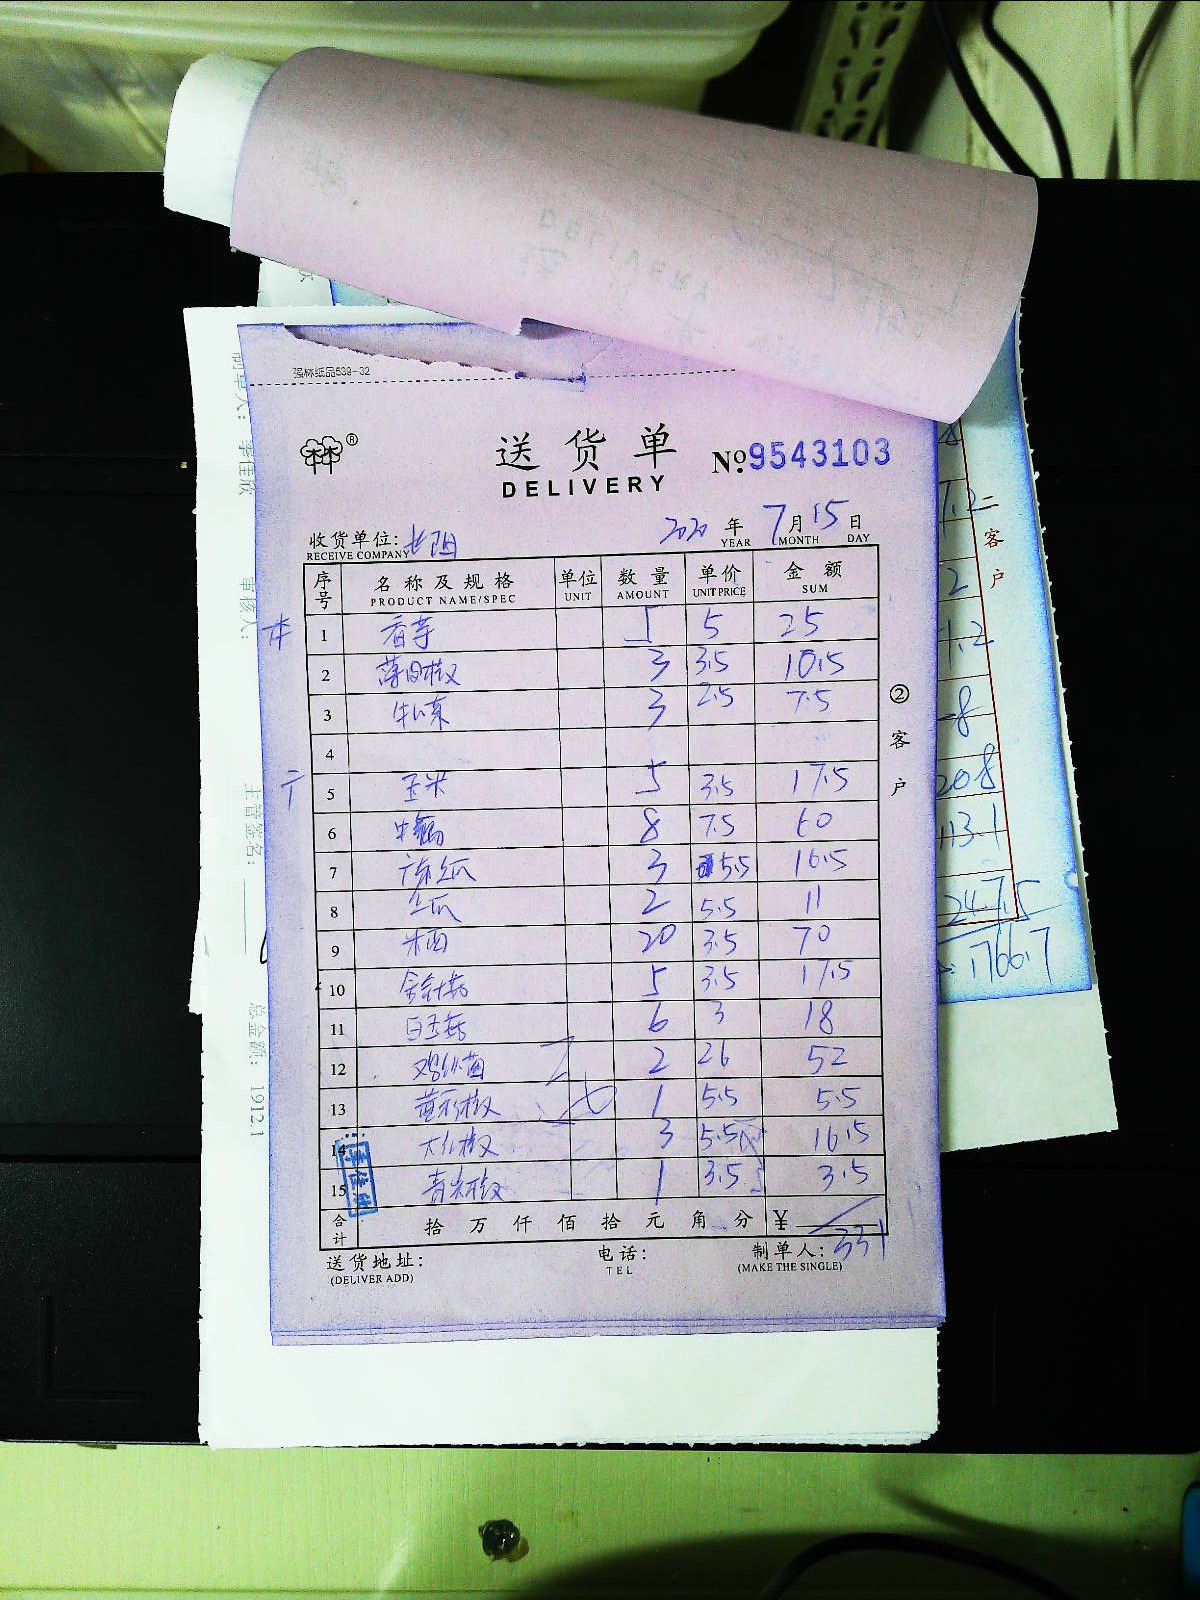 强林纸品539-32
送货单
DELIVERY
№ 9543103
收货单位:
RECEIVE COMPANY
2020 年 7 月 15 日
YEAR MONTH DAY
序号 名称及规格 单位 数量 单价 金额
PRODUCT NAME/SPEC UNIT AMOUNT UNIT PRICE SUM
1 香芋 5 5 25
2 3 3.5 10.5
3 3 2.5 7.5
4
5 玉米 5 3.5 17.5
6 8 7.5 60
7 3 5.5 16.5
8 2 5.5 11
9 20 3.5 70
10 金针菇 5 3.5 17.5
11 白玉菇 6 3 18
12 2 26 52
13 1 5.5 5.5
14 3 5.5 16.5
15 1 3.5 3.5
合计 拾 万 仟 佰 拾 元 角 分 ¥
331
送货地址: 电话: 制单人:
(DELIVER ADD) TEL (MAKE THE SINGLE)
② 客户
二客户
2
1.2
-8
208
113.1
247.5
1766.7
制单人: 李佳欣
审核人:
主管签名:
总金额: 1912.1